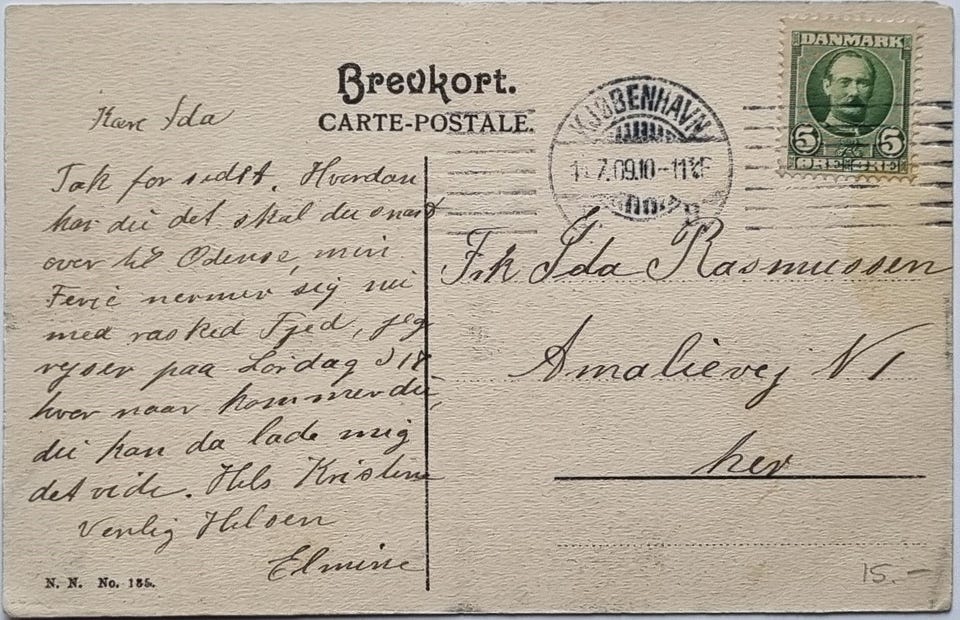 Brevkort.
CARTE-POSTALE.
DANMARK
5 5
KJØBENHAVN
7.09.10-11
Kære Ida
Tak for sidst. Hvordan
har du det skal du snart
over til Odense, min
Ferie nermer sig nu
med rasked Fjed, jeg
rejser paa Lördag d 17
hvor naar kommer du,
du kan da lade mig
det vide. Hils Kristine
Venlig Hilsen
Elmine
Frk Ida Rasmussen
Amalievej N 1
her
N. N. No. 135.
15.-